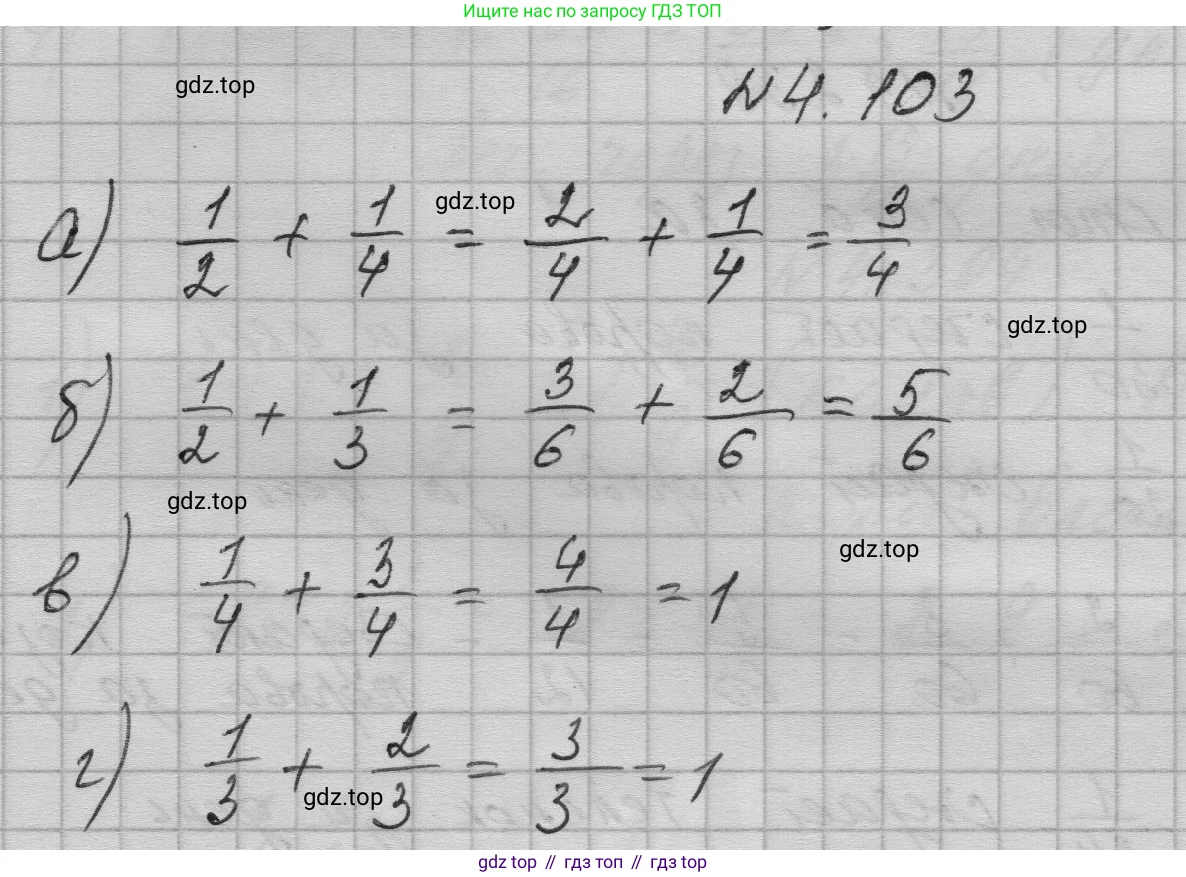 Ищите нас по запросу ГДЗ ТОП
gdz.top
№ 4.103
а) 1/2 + 1/4 = 2/4 + 1/4 = 3/4
gdz.top
gdz.top
б) 1/2 + 1/3 = 3/6 + 2/6 = 5/6
gdz.top
gdz.top
в) 1/4 + 3/4 = 4/4 = 1
г) 1/3 + 2/3 = 3/3 = 1
gdz.top
gdz top // гдз топ // гдз top